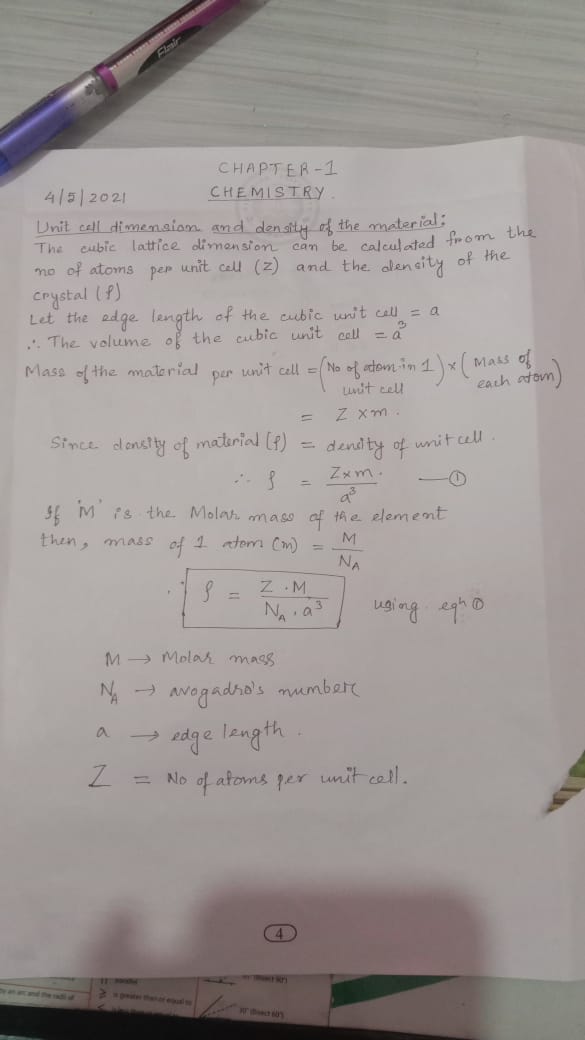 Flair
CHAPTER-1
4/5/2021 CHEMISTRY
Unit cell dimension and density of the material:
The cubic lattice dimension can be calculated from the
no of atoms per unit cell (Z) and the density of the
crystal (ρ)
Let the edge length of the cubic unit cell = a
∴ The volume of the cubic unit cell = a³
Mass of the material per unit cell = (No of atom in 1 unit cell) × (Mass of each atom)
= Z × m.
Since density of material (ρ) = density of unit cell.
∴ ρ = Z×m / a³ —①
If 'M' is the Molar mass of the element
then, mass of 1 atom (m) = M / NA
∴ ρ = Z . M / NA . a³ using eqn ①
M → Molar mass
NA → avogadro's number
a → edge length.
Z = No of atoms per unit cell.
4
is greater than or equal to